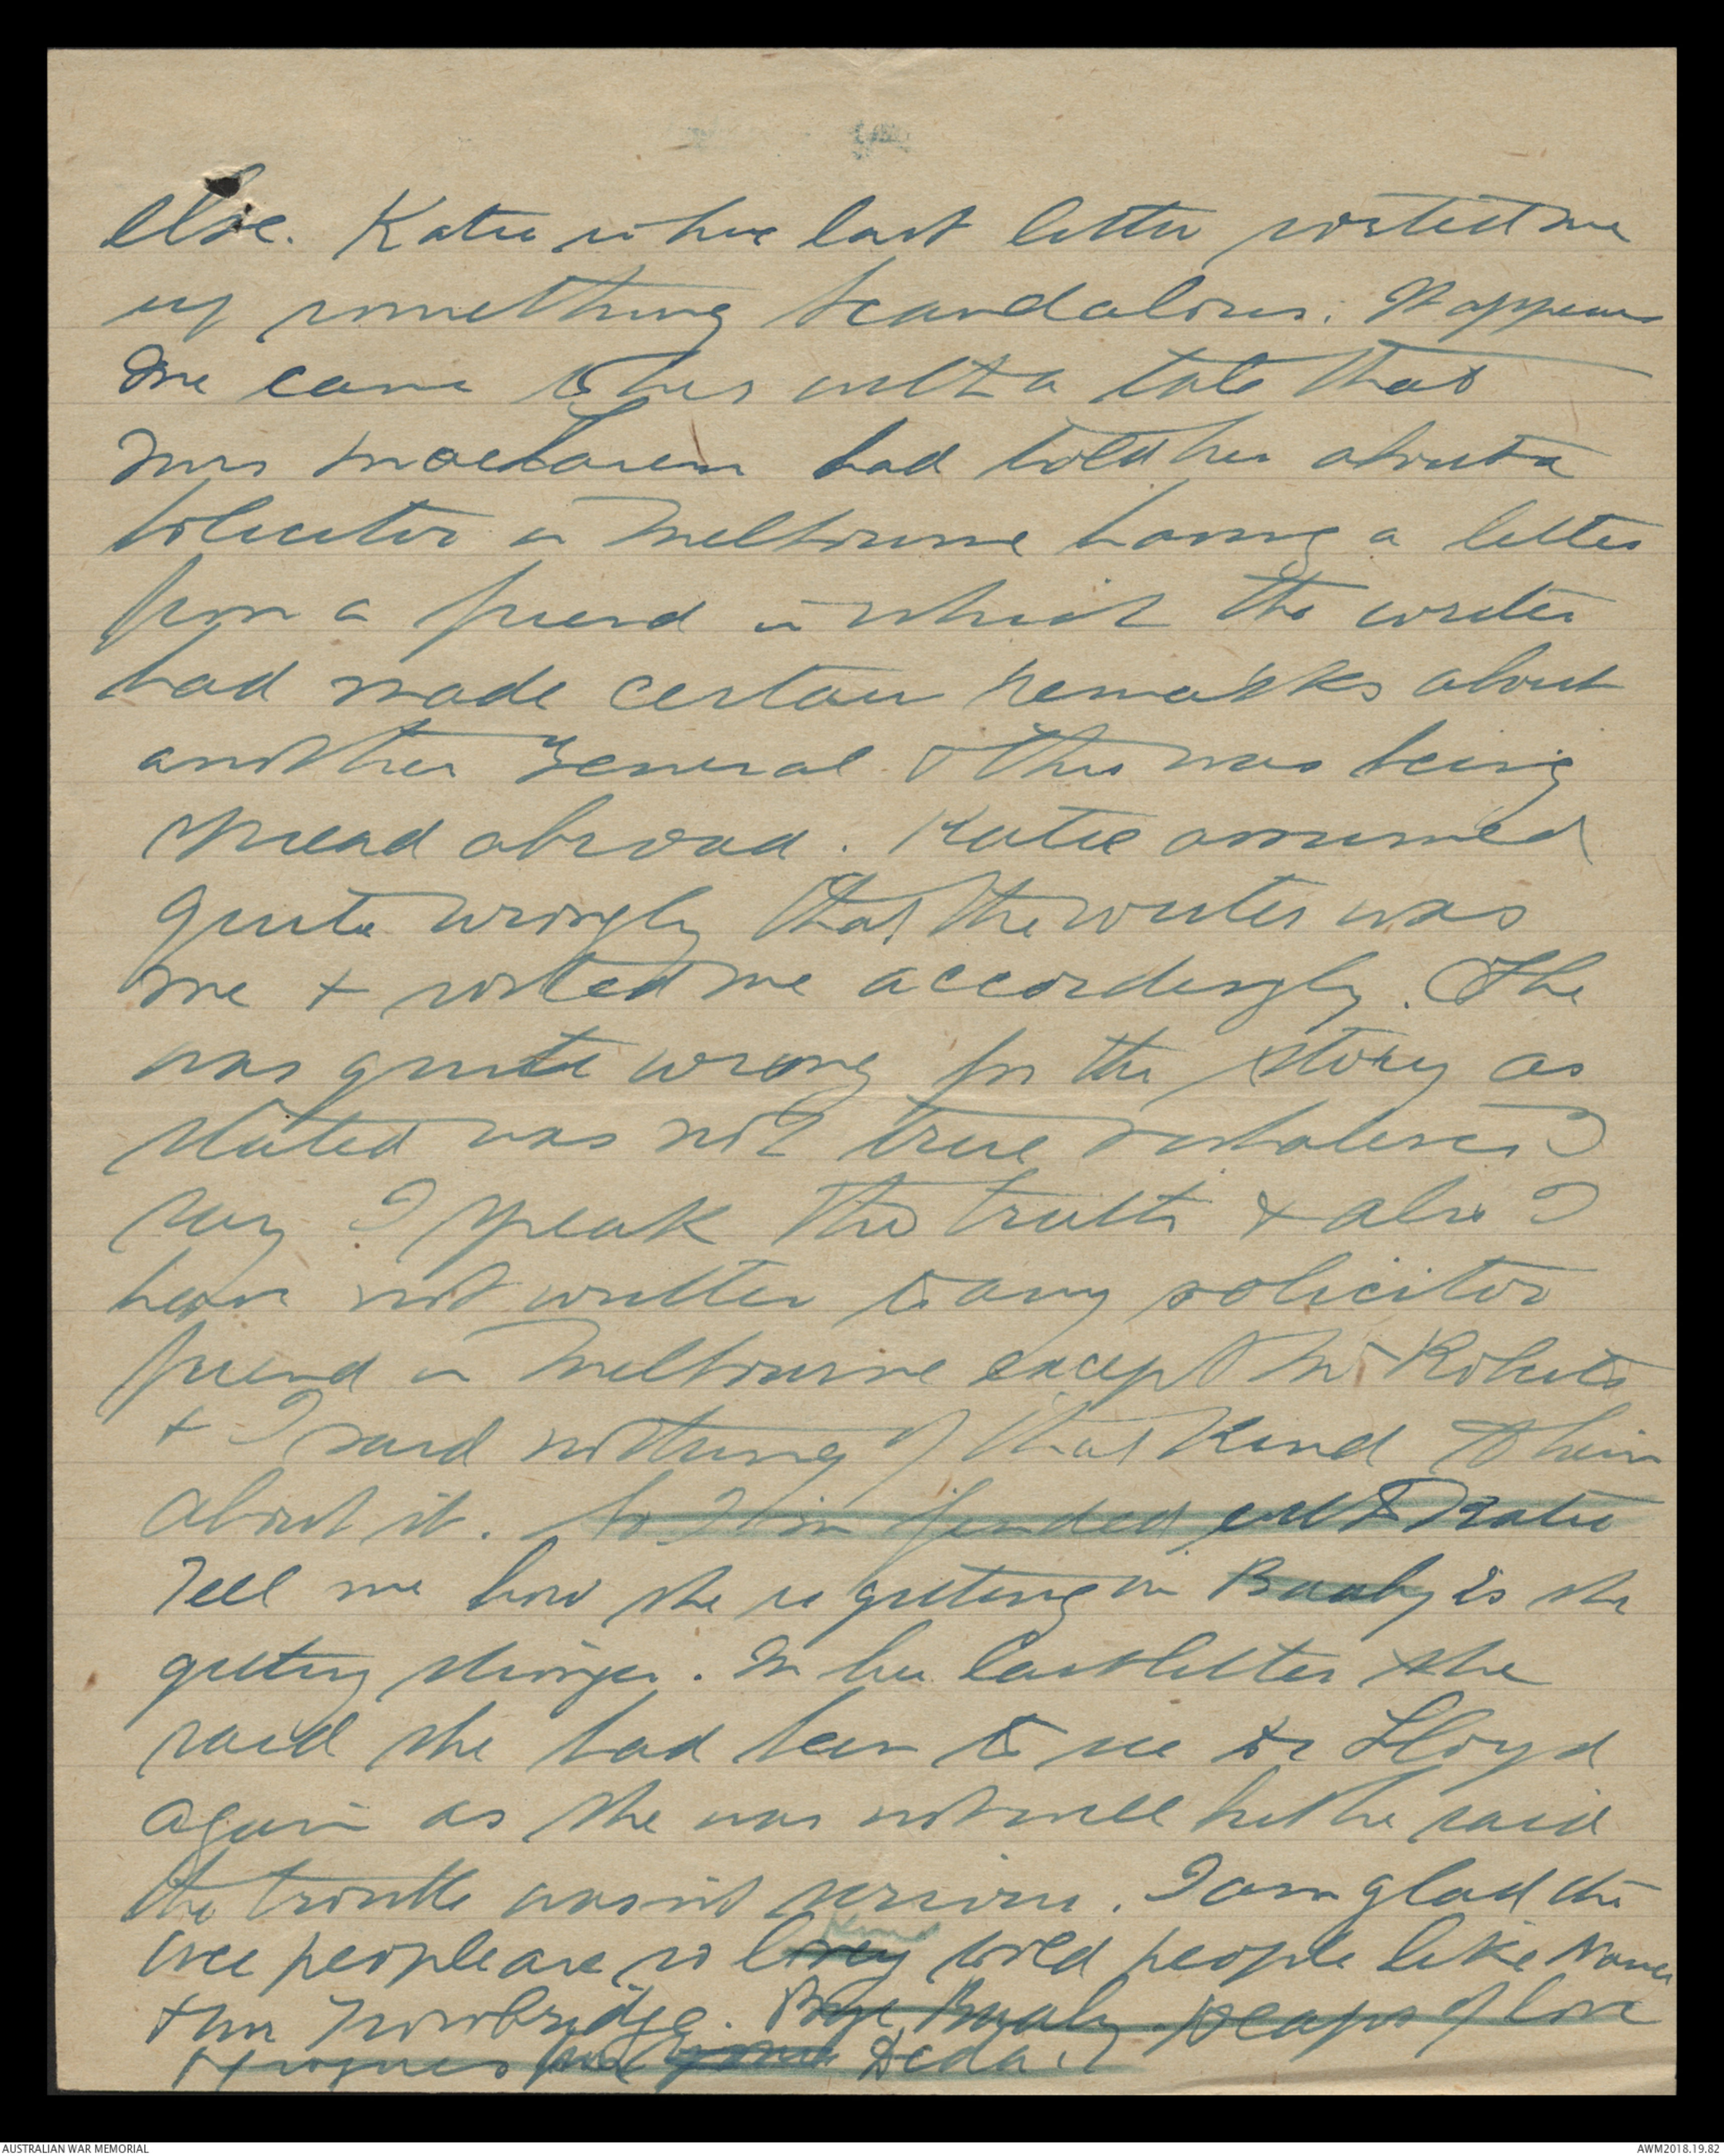 else. Katie in her last letter roasted me
up something scandalous. It appears
one came to her with a tale that
Mrs MacLaren had told her about a
solicitor in Melbourne having a letter
from a friend in which the writer
had made certain remarks about
another General & this was being
spread abroad. Katie assumed
quite wrongly that the writer was
me & roasted me accordingly. She
was quite wrong for the story as
stated was not true I
say I speak the truth & also I
have not written to any solicitor
friend in Melbourne except Mr Roberts
& I said nothing of that kind to him
about it. So I am offended with Katie
Tell me how she is getting on Baaby is she
getting stronger. In her last letter she
said she had been to see Dr Lloyd
again as she was not well but he said
the trouble wasn't serious. I am glad the
wee people are so kind lovey to old people like Nanna
& Mr Trowbridge. Bye Baaby. Heaps of love
Dedda
AUSTRALIAN WAR MEMORIAL
AWM2018.19.82